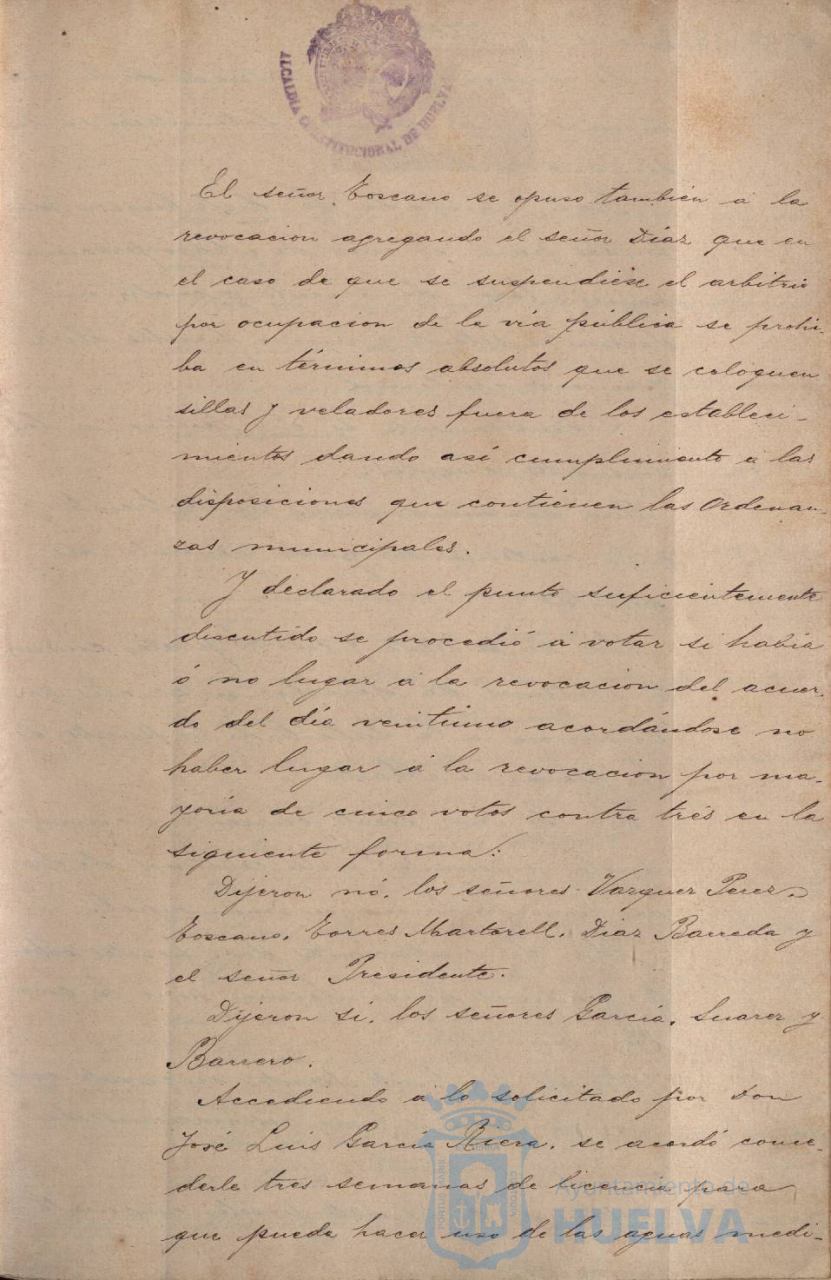 ALCALDÍA CONSTITUCIONAL DE HUELVA
El señor Toscano se opuso también a la
revocacion agregando el señor Díaz que en
el caso de que se suspendiése el arbitrio
por ocupacion de la vía pública se prohi-
ba en términos absolutos que se coloquen
sillas y veladores fuera de los estableci-
mientos dando así cumplimiento a las
disposiciones que contienen las Ordenan-
zas municipales.
Y declarado el punto suficientemente
discutido se procedió á votar si había
ó no lugar a la revocacion del acuer-
do del día veintiuno acordándose no
haber lugar á la revocacion por ma-
yoría de cinco votos contra trés en la
siguiente forma:
Dijeron nó, los señores Vazquez Perez,
Toscano, Torres Martorell, Diaz Barreda y
el señor Presidente.
Dijeron si, los señores García, Suarez y
Barrero.
Accediendo a lo solicitado por Don
José Luis García Riera, se acordó conce-
derle tres semanas de licencia para
que pueda hacer uso de las aguas medi-
Ayuntamiento de
HUELVA